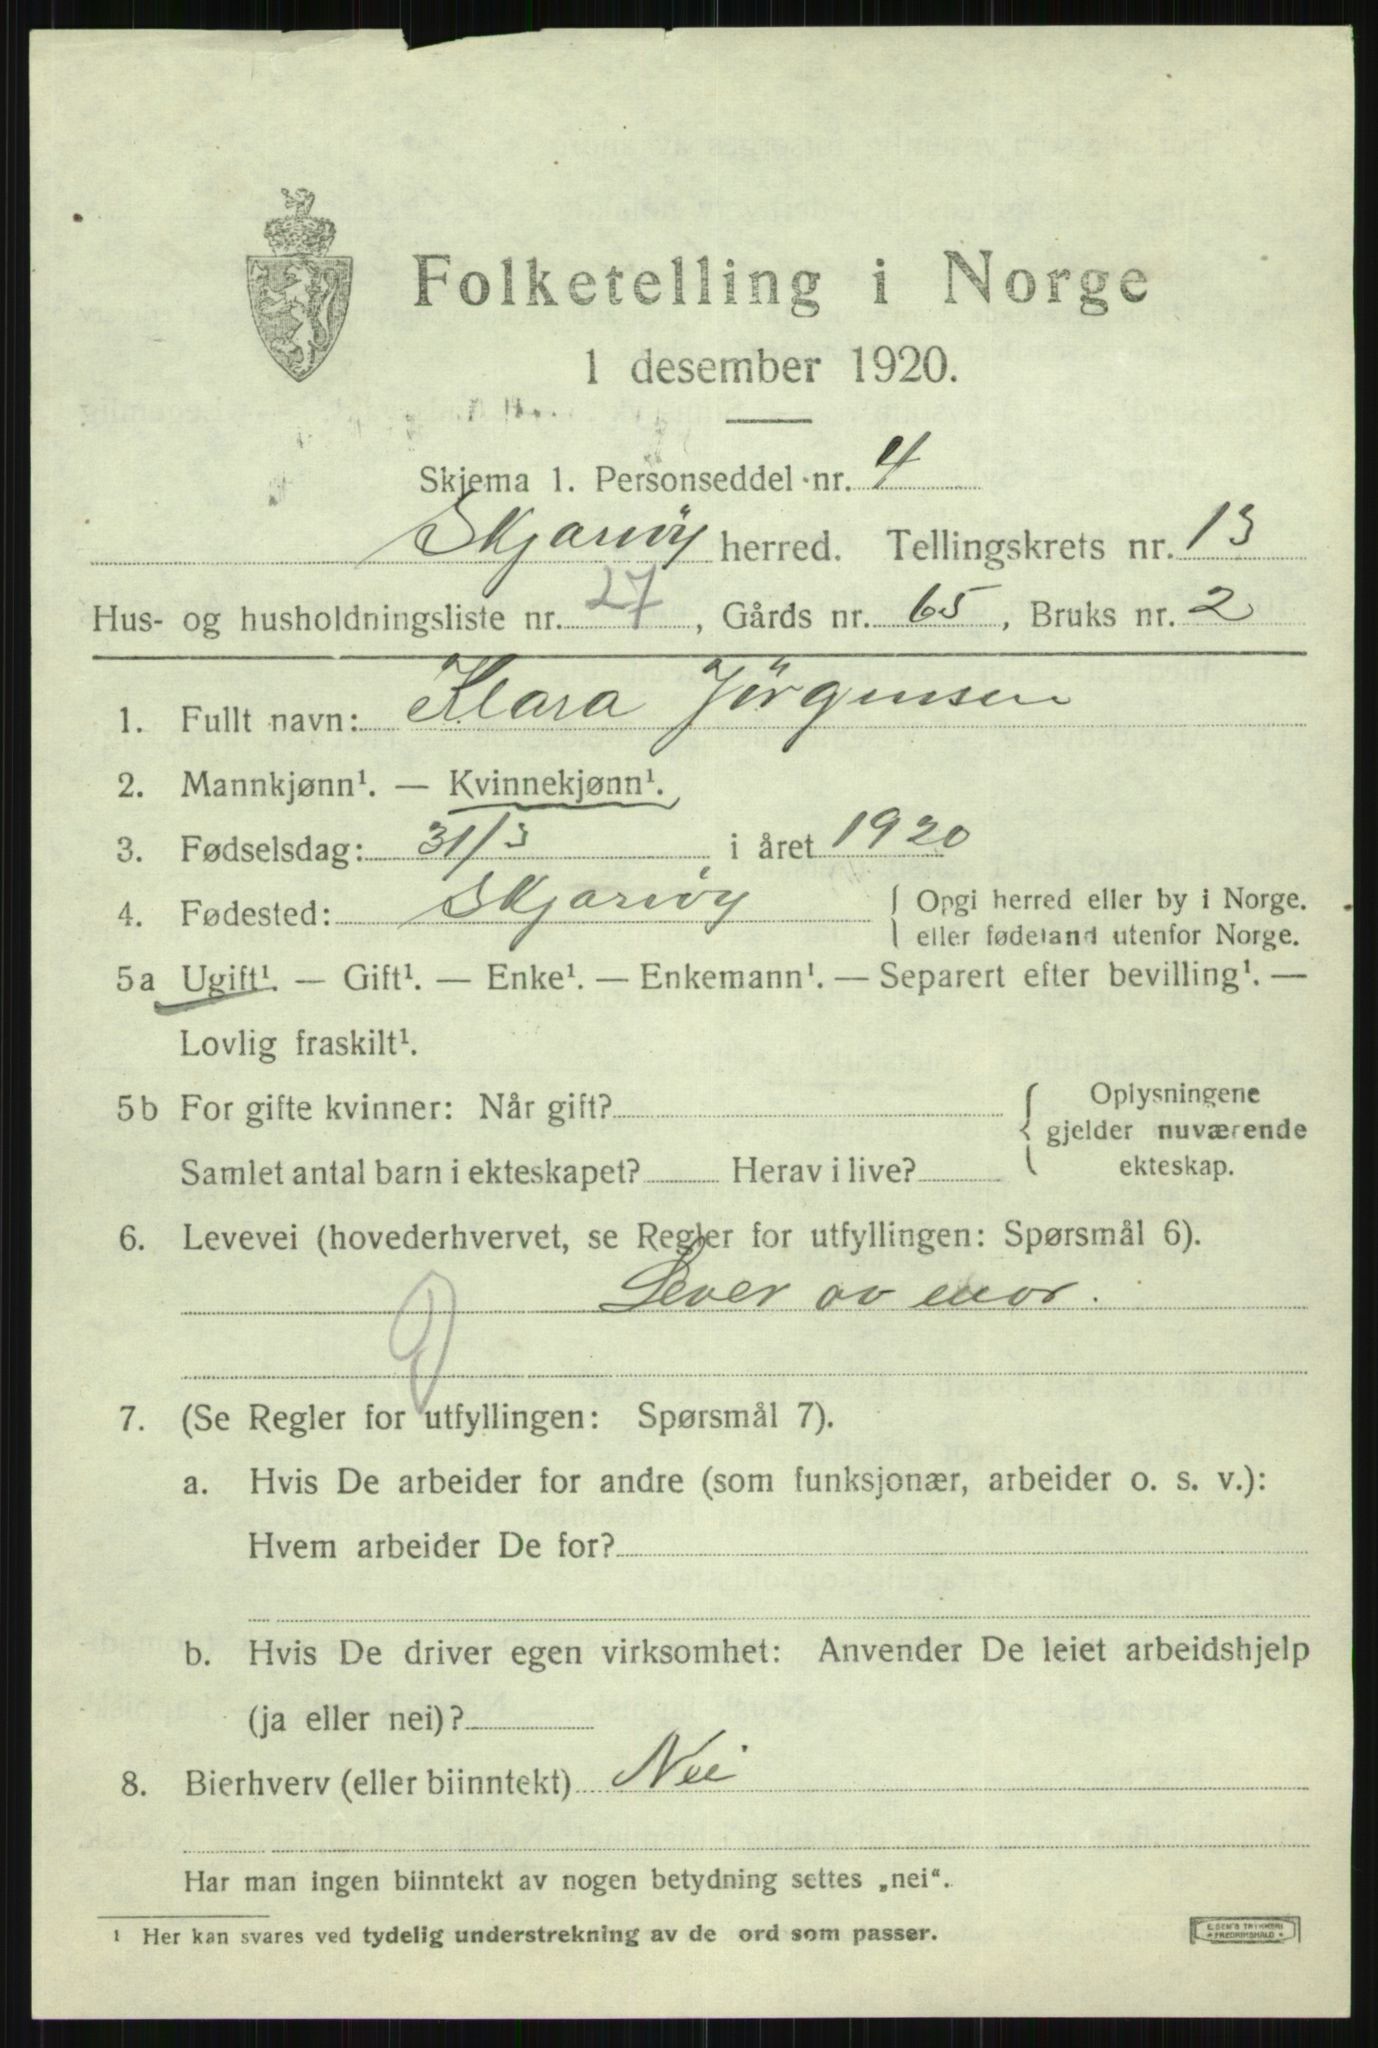 Folketelling i Norge
1 desember 1920.
Skjema 1. Personseddel nr. 4
Skjærvøy herred. Tellingskrets nr. 13
Hus- og husholdningsliste nr. 27, Gårds nr. 65, Bruks nr. 2
1. Fullt navn: Klara Jörgensen
2. Mannkjønn¹. — Kvinnekjønn¹.
3. Fødselsdag: 31/3 i året 1920
4. Fødested: Skjærvøy { Opgi herred eller by i Norge.
eller fødeland utenfor Norge.
5a Ugift¹. — Gift¹. — Enke¹. — Enkemann¹. — Separert efter bevilling¹. —
Lovlig fraskilt¹.
5b For gifte kvinner: Når gift? { Oplysningene
gjelder nuværende
Samlet antal barn i ekteskapet? Herav i live? ekteskap.
6. Levevei (hovederhvervet, se Regler for utfyllingen: Spørsmål 6).
Lever av mor.
7. (Se Regler for utfyllingen: Spørsmål 7).
a. Hvis De arbeider for andre (som funksjonær, arbeider o. s. v.):
Hvem arbeider De for?
b. Hvis De driver egen virksomhet: Anvender De leiet arbeidshjelp
(ja eller nei)?
8. Bierhverv (eller biinntekt) Nei
Har man ingen biinntekt av nogen betydning settes „nei“.
¹ Her kan svares ved tydelig understrekning av de ord som passer.